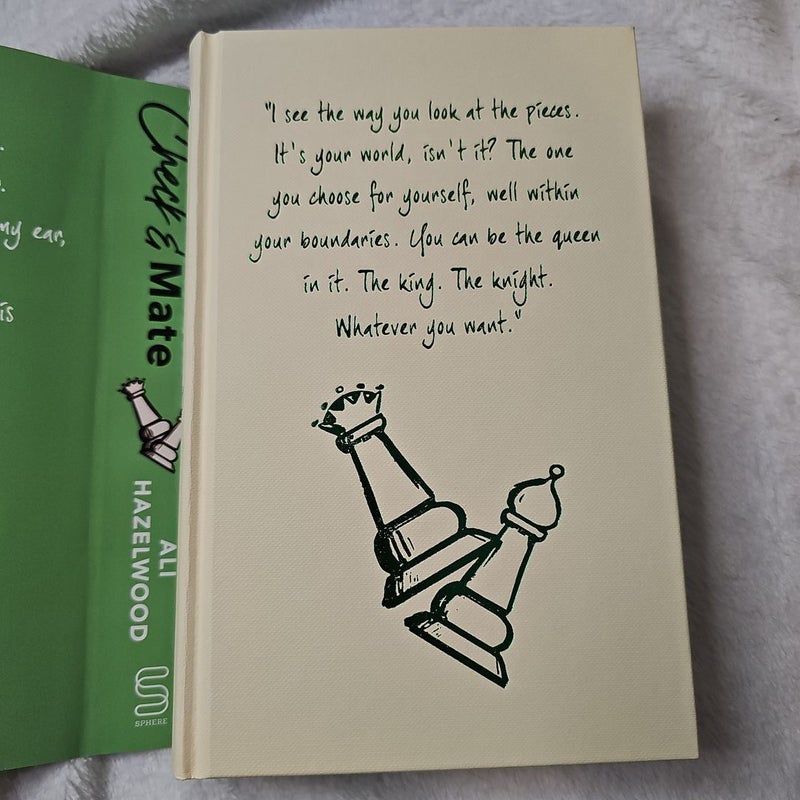 my ear,
is
Check & Mate
ALI
HAZELWOOD
SPHERE
"I see the way you look at the pieces.
It's your world, isn't it? The one
you choose for yourself, well within
your boundaries. You can be the queen
in it. The king. The knight.
Whatever you want."